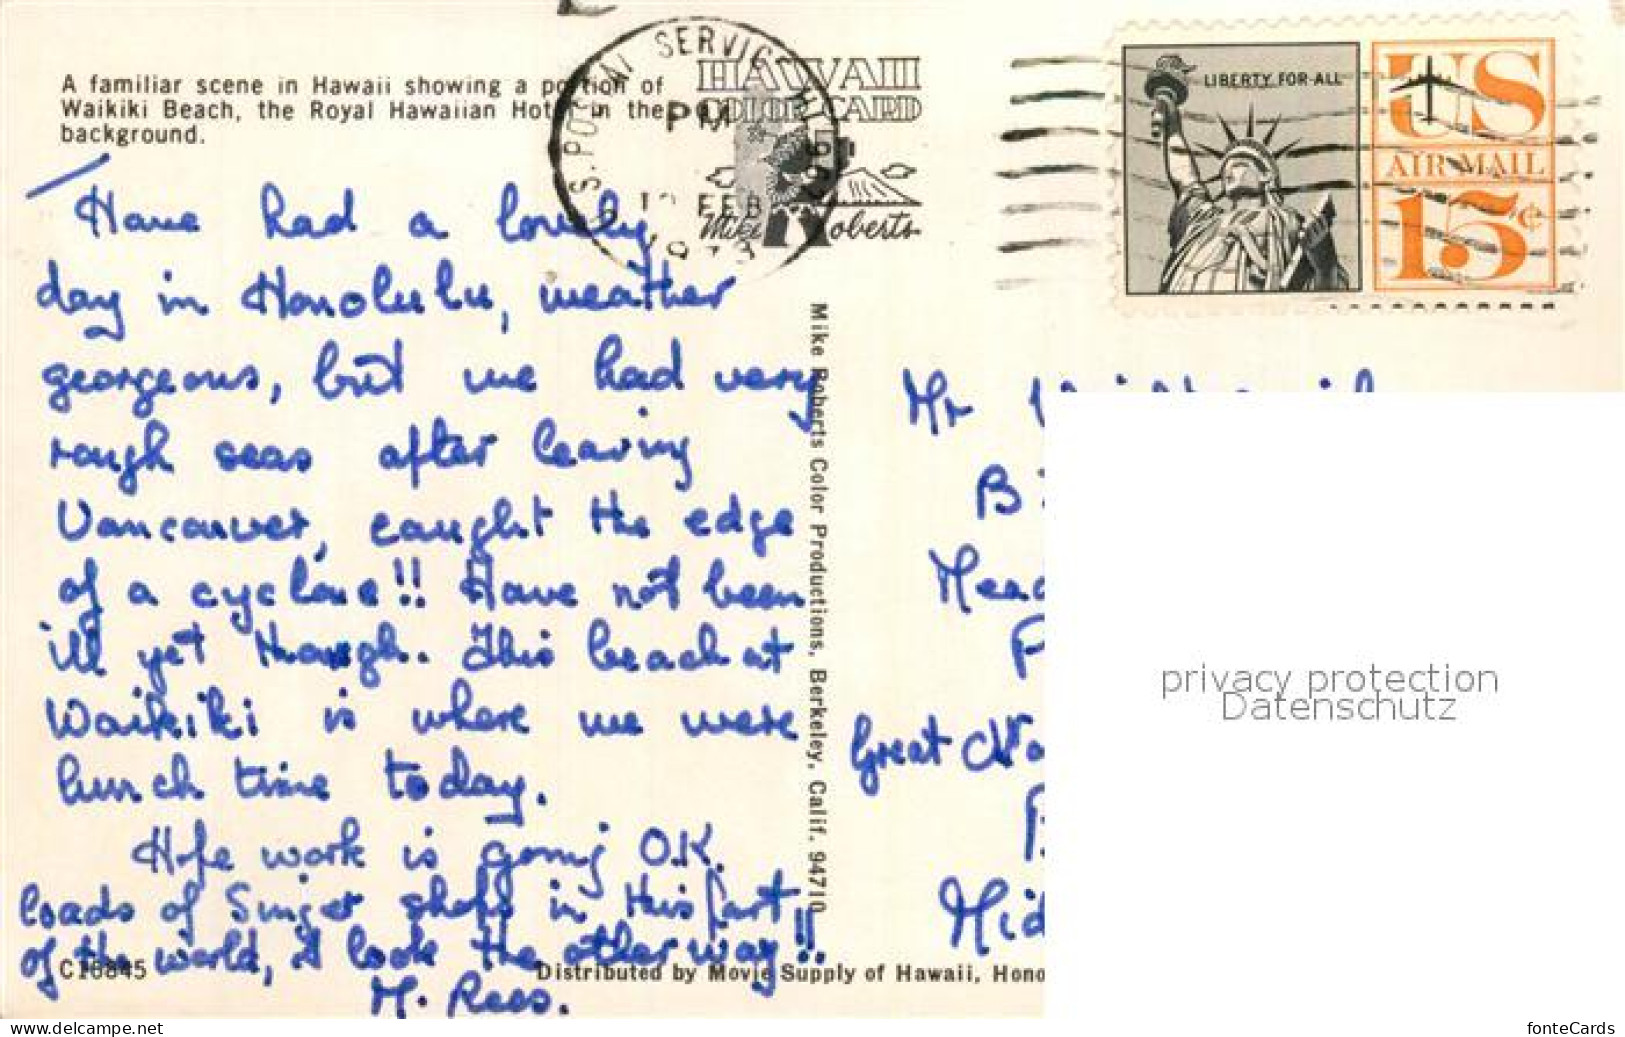 A familiar scene in Hawaii showing a portion of
Waikiki Beach, the Royal Hawaiian Hotel in the
background.
HAWAII
COLOR CARD
Mike Roberts
U.S. POSTAL SERVICE
PM
FEB
LIBERTY FOR ALL
US
AIR MAIL
15¢
Have had a lovely
day in Honolulu, weather
georgeous, but we had very
rough seas after leaving
Vancouver, caught the edge
of a cyclone!! Have not been
ill yet though. This beach at
Waikiki is where we were
lunch time today.
Hope work is going O.K.
loads of Singer shops in this part
of the world, I look the other way!!
M. Rees.
Mike Roberts Color Productions, Berkeley, Calif. 94710
Mr
Great
Mid
C16845
Distributed by Movie Supply of Hawaii, Hono
privacy protection
Datenschutz
www.delcampe.net
fonteCards